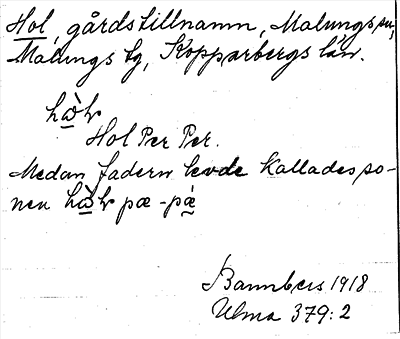 Hol, gårdstillnamn, Malungs sn,
Malungs tg, Kopparbergs län.
Hol Per Per.
Medan fadern levde kallades so-
nen
Bannbers 1918
Ulma 379:2